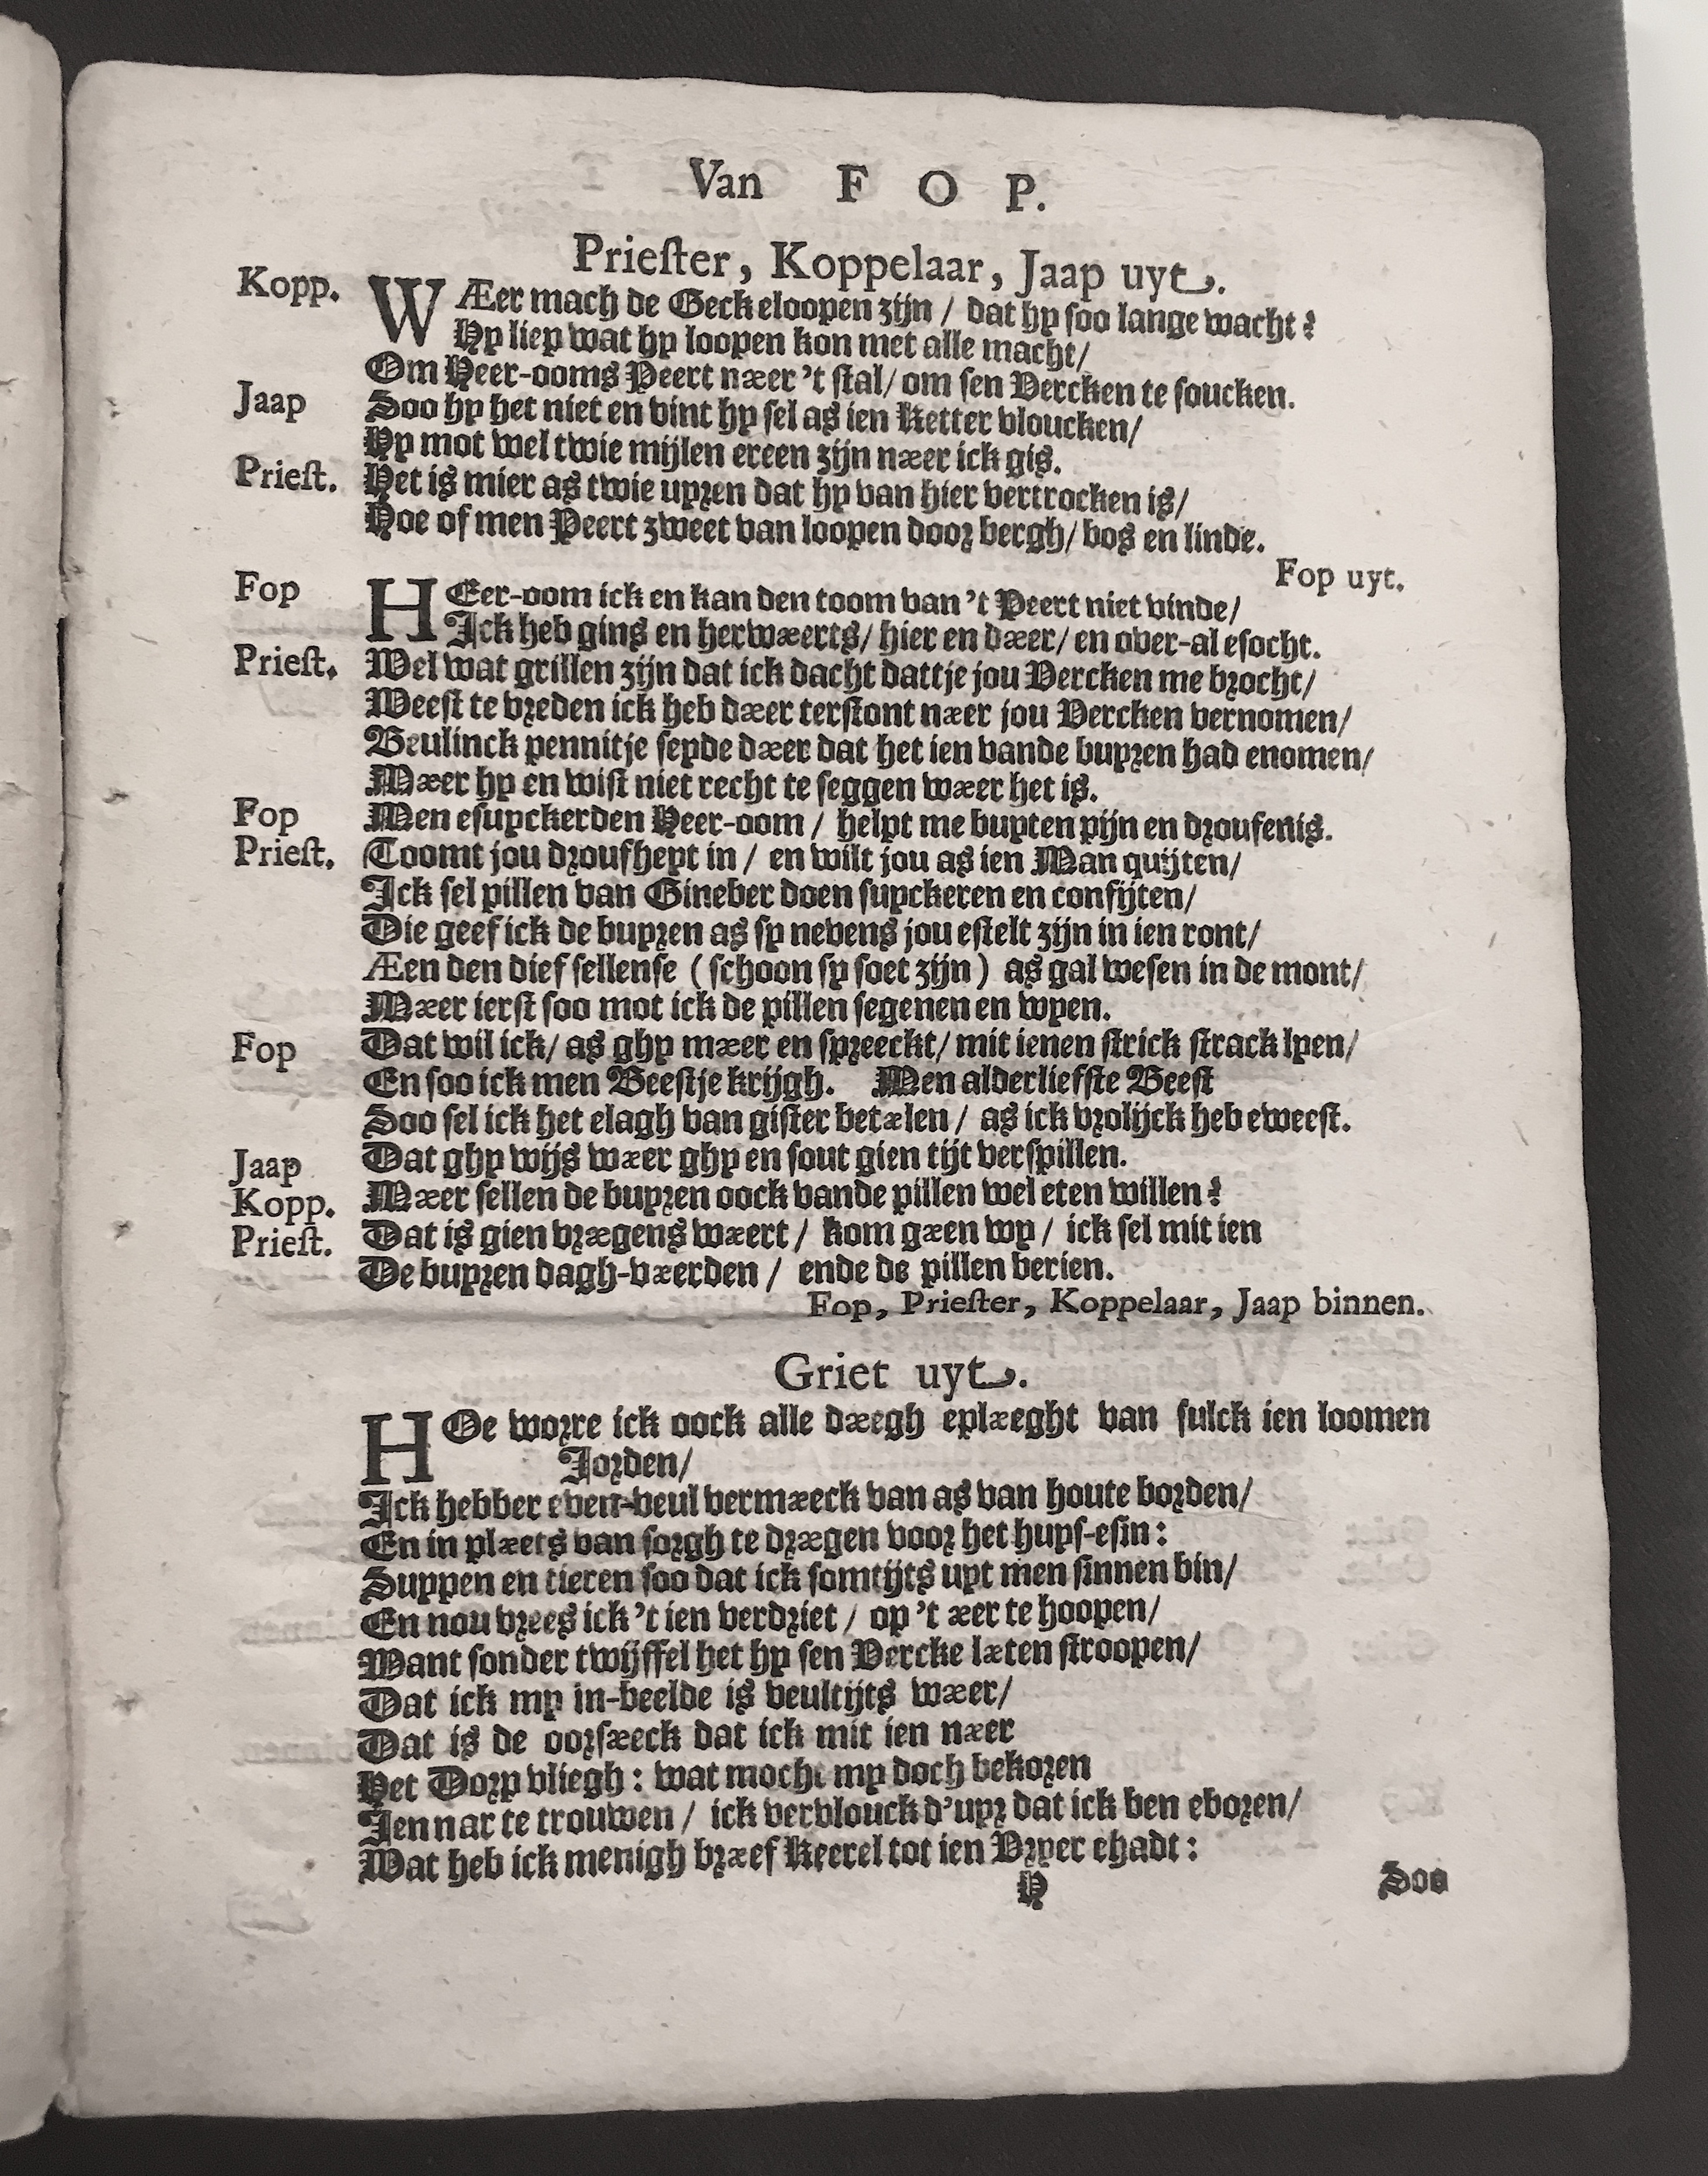 Van F O P.
Priester, Koppelaar, Jaap uyt.
Kopp. WÆer mach de Geck eloopen zijn / dat hy soo lange wacht?
Hy liep wat hy loopen kon met alle macht/
Om Heer-ooms Peert næer 't stal/ om sen Vercken te soucken.
Jaap Soo hy het niet en vint hy sel as ien Ketter vloucken/
Hy mot wel twie mijlen ereen zijn næer ick gis.
Priest. Het is mier as twie uyren dat hy van hier vertrocken is/
Hoe of men Peert zweet van loopen door bergh/ bos en linde.
Fop uyt.
Fop HEer-oom ick en kan den toom van 't Peert niet vinde/
Ick heb gins en herwæerts/ hier en dæer/ en over-al esocht.
Priest. Wel wat grillen zijn dat ick dacht dattje jou Vercken me brocht/
Weest te vreden ick heb dæer terstont næer jou Vercken vernomen/
Beulinck pennitje seyde dæer dat het ien vande buyren had enomen/
Mæer hy en wist niet recht te seggen wæer het is.
Fop Men esuyckerden Heer-oom / helpt me buyten pijn en droufenis.
Priest. Toomt jou droufheyt in / en wilt jou as ien Man quijten/
Ick sel pillen van Gineber doen suyckeren en confijten/
Die geef ick de buyren as sy nevens jou estelt zijn in ien ront/
Æen den dief sellense (schoon sy soet zijn) as gal wesen in de mont/
Mæer ierst soo mot ick de pillen segenen en wyen.
Fop Dat wil ick/ as ghy mæer en spreeckt/ mit ienen strick strack lyen/
En soo ick men Beestje krijgh. Men alderliefste Beest
Soo sel ick het elagh van gister betælen / as ick vrolijck heb eweest.
Jaap Dat ghy wijs wæer ghy en sout gien tijt verspillen.
Kopp. Mæer sellen de buyren oock vande pillen wel eten willen?
Priest. Dat is gien vrægens wæert / kom gæen wy / ick sel mit ien
De buyren dagh-væerden / ende de pillen berien.
Fop, Priester, Koppelaar, Jaap binnen.
Griet uyt.
HOe worre ick oock alle dægh eplæeght van sulck ien loomen
Jorden/
Ick hebber even-veul vermæeck van as van houte borden/
En in plæets van sorgh te drægen voor het huys-esin:
Suypen en tieren soo dat ick somtijts uyt men sinnen bin/
En nou vrees ick 't ien verdriet / op 't æer te hoopen/
Want sonder twijffel het hy sen Vercke læten stroopen/
Dat ick my in-beelde is veultijts wæer/
Dat is de oorsæeck dat ick mit ien næer
Het Dorp vliegh: wat mocht my doch bekoren
Ien nar te trouwen / ick vervlouck d'uyr dat ick ben eboren/
Wat heb ick menigh bræef Keerel tot ien Vryer ehadt:
H Soo